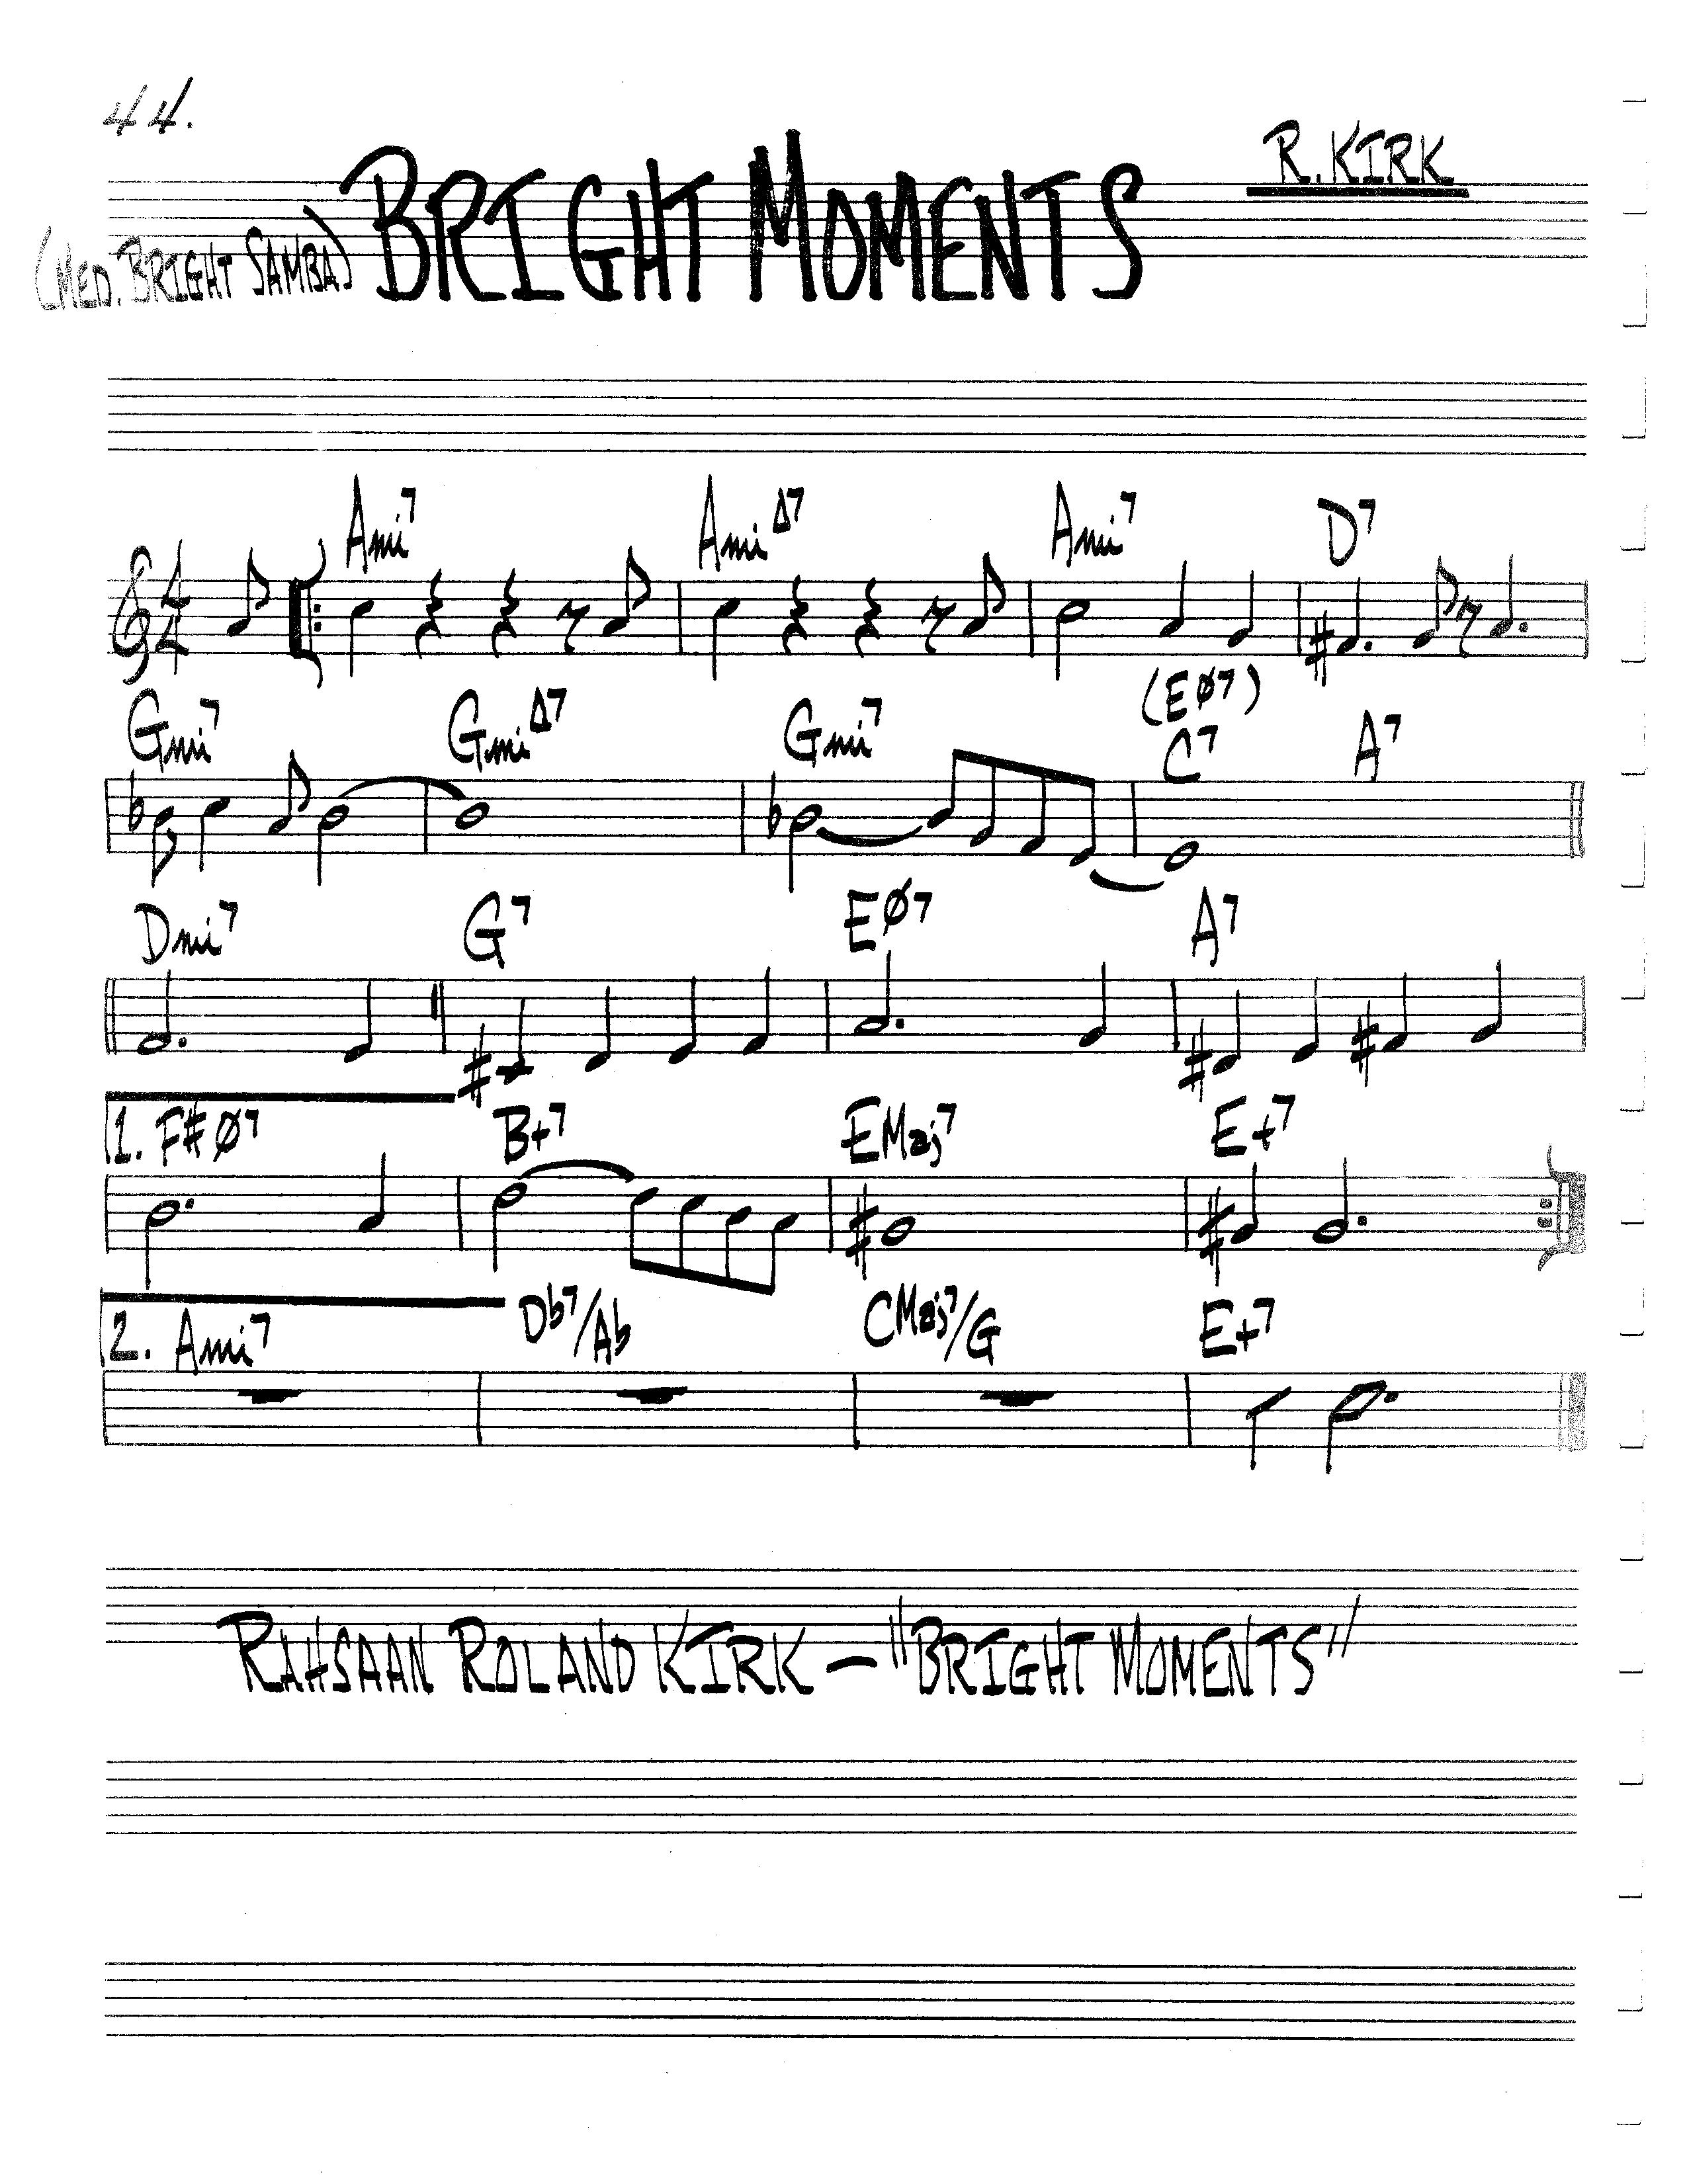 44.
R. KIRK
(MED. BRIGHT SAMBA) BRIGHT MOMENTS
Ami7 Ami∆7 Ami7 D7
4/4
(EØ7)
Gmi7 Gmi∆7 Gmi7 C7 A7
Dmi7 G7 EØ7 A7
1. F#Ø7 B+7 EMaj7 E+7
2. Ami7 Db7/Ab CMaj7/G E+7
RAHSAAN ROLAND KIRK – "BRIGHT MOMENTS"